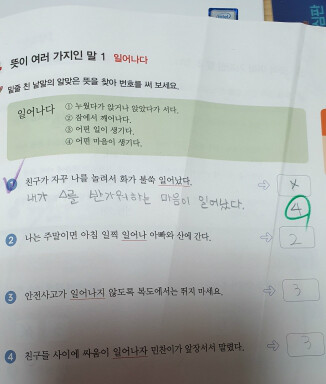 뜻이 여러 가지인 말 1 일어나다
밑줄 친 낱말의 알맞은 뜻을 찾아 번호를 써 보세요.
일어나다 ① 누웠다가 앉거나 앉았다가 서다.
② 잠에서 깨어나다.
③ 어떤 일이 생기다.
④ 어떤 마음이 생기다.
1 친구가 자꾸 나를 놀려서 화가 불쑥 일어났다. ⇨ x
내가 를 반가워하는 마음이 일어났다. 4
2 나는 주말이면 아침 일찍 일어나 아빠와 산에 간다. ⇨ 2
3 안전사고가 일어나지 않도록 복도에서는 뛰지 마세요. ⇨ 3
4 친구들 사이에 싸움이 일어나자 민찬이가 앞장서서 말렸다. ⇨ 3